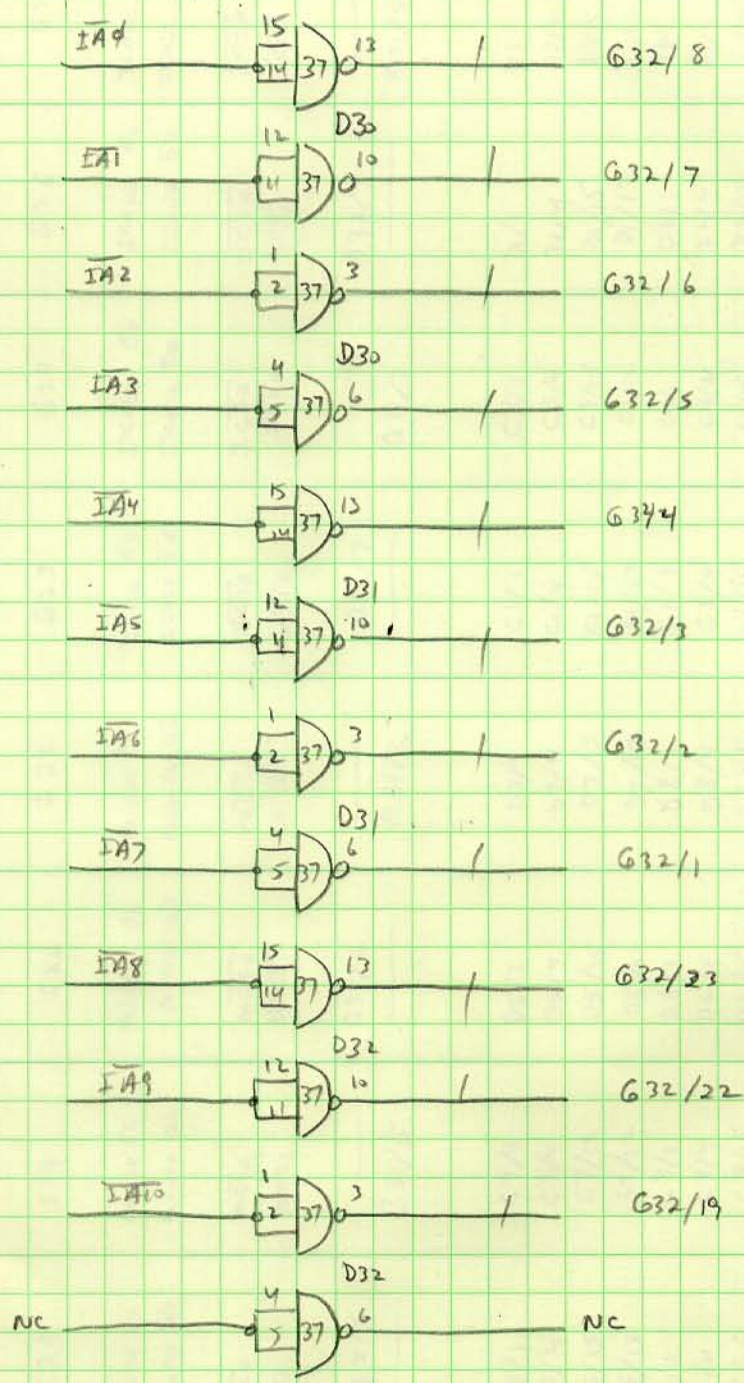 IAØ 15 14 37 13 G32/8
D30
IA1 12 11 37 10 G32/7
IA2 1 2 37 3 G32/6
D30
IA3 4 5 37 6 G32/5
IA4 15 14 37 13 G32/4
D31
IA5 12 11 37 10 G32/3
IA6 1 2 37 3 G32/2
D31
IA7 4 5 37 6 G32/1
IA8 15 14 37 13 G32/23
D32
IA9 12 11 37 10 G32/22
IA10 1 2 37 3 G32/19
D32
NC 4 5 37 6 NC